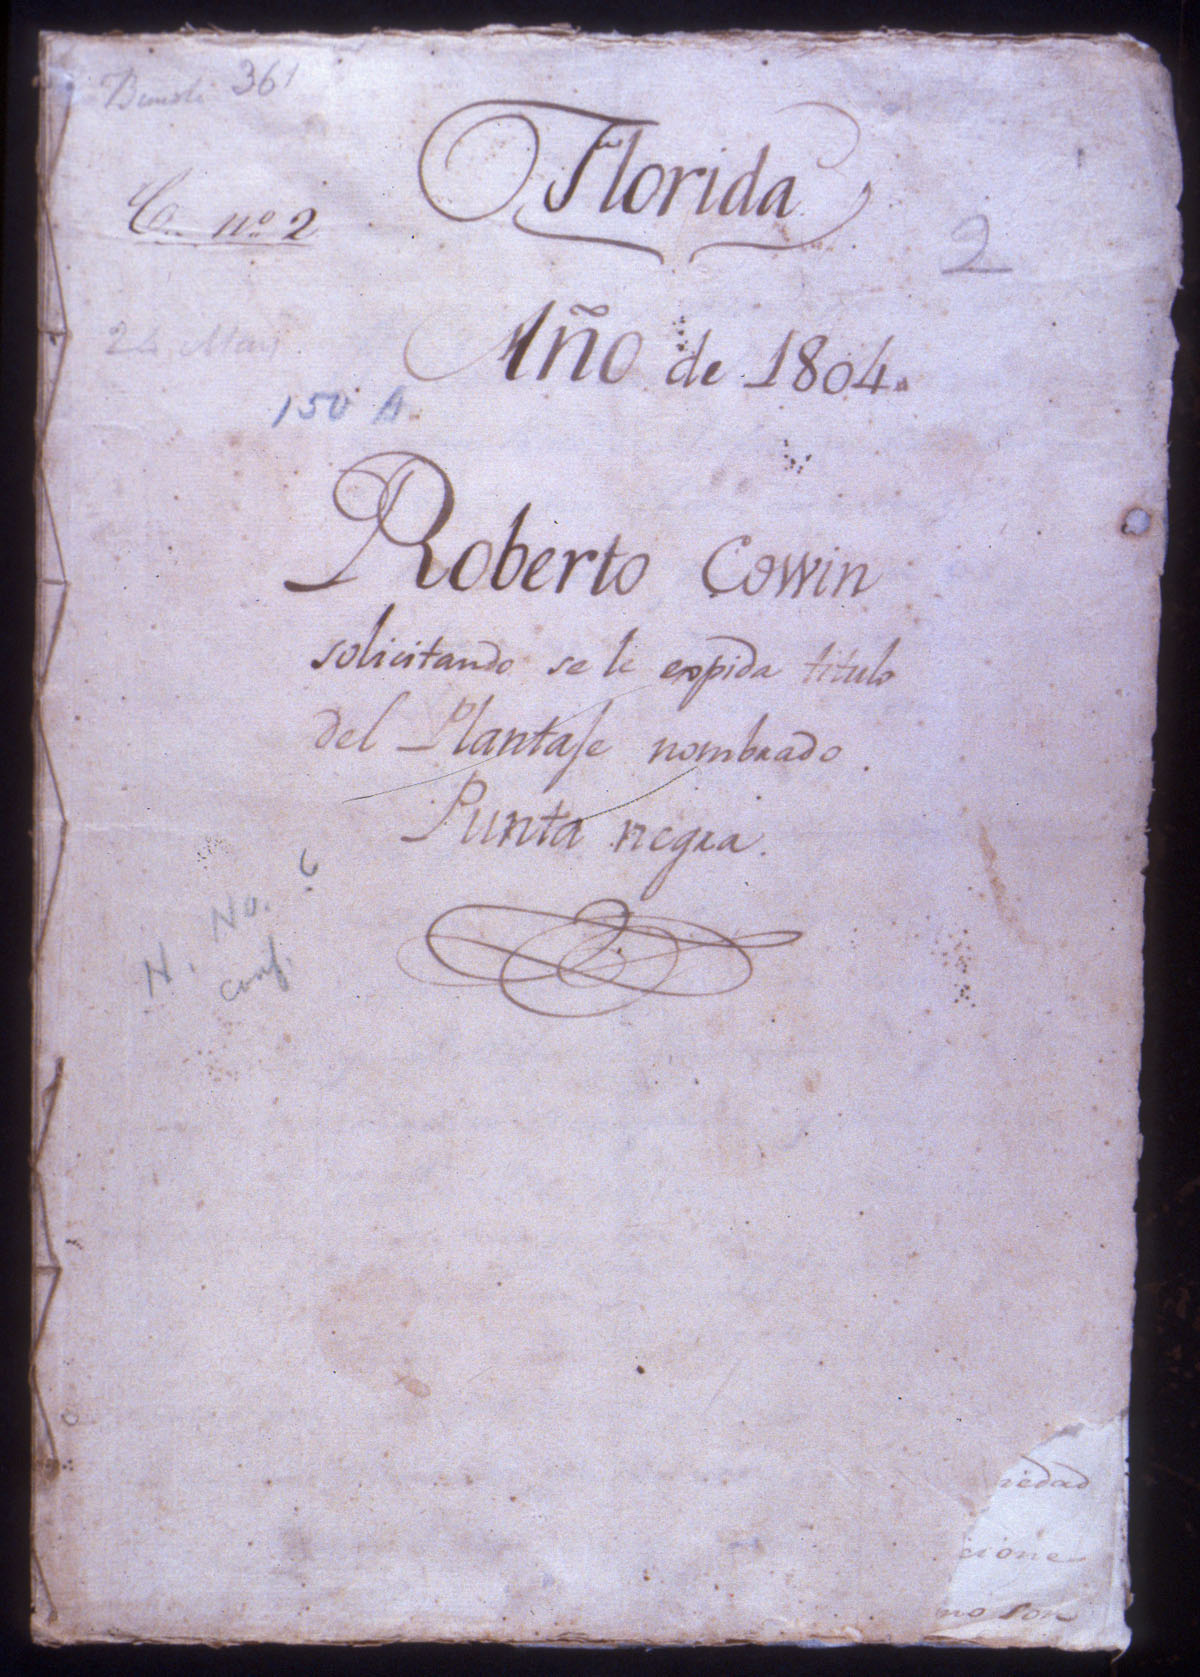 361
Florida
nº 2
2
Año de 1804.
150 A.
Roberto Cowin
solicitando se le expida titulo
del Plantaje nombrado
Punta negra.
No. 6
N. conf.
iedad
cione
no son